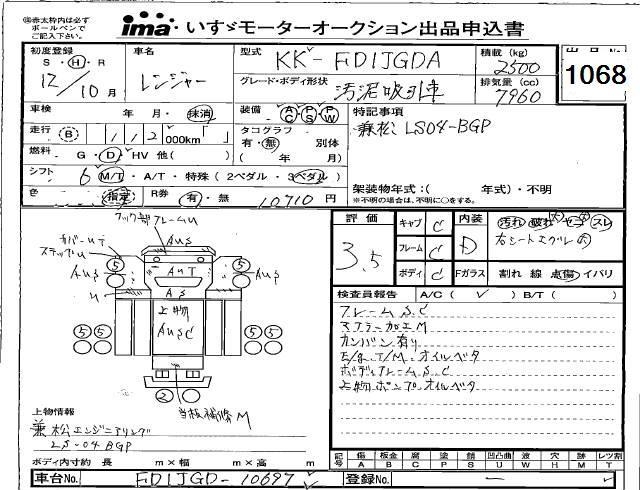 ◎赤太枠内は必ず
ボールペンで
ご記入下さい。
ima いすゞモーターオークション出品申込書
初度登録 S・H・R 12/10月
車名 レンジャー
型式 KK-FD1JGDA
グレード・ボディ形状 汚泥吸引車
積載 (kg) 2500
排気量 (cc) 7960
1068
車検 年 月・抹消
装備 AC PS PW
特記事項
兼松 LS04-BGP
走行 B 112,000km「 」
タコグラフ 有・無 別体
( 年 月)
燃料 G・D・HV 他( )
シフト 6 M/T・A/T・特殊(2ペダル・3ペダル)
架装物年式:( 年式)・不明
※不明の場合は、不明に○をする。
色 指定 R券 有・無 10710円
フック部フレームU
カバーUT
ステップU
AUS
AUT
AS
上物
AUSC
5 5 5 5 5 5
2
評価 3.5
キャブ C
フレーム C
ボディ C
内装 D
汚れ 破れ コゲ スレ
右シートエグレ大
Fガラス 割れ 線 点傷 イバリ
検査員報告 A/C( ✓ ) B/T( )
フレームS.C
マフラー加工M
カンバン有り
E/g.T/M.オイルベタ
ボディフレームS.C
上物ポンプオイルベタ
上物情報
兼松エンジニアリング
LS-04BGP
ボディ内寸約 長 m×幅 m×高 m
記号 傷A 板金B 腐C 塗P 錆S 凹凸曲U 波W 穴H 跡M レッツ割T
車台No. FD1JGD-10697
登録No.